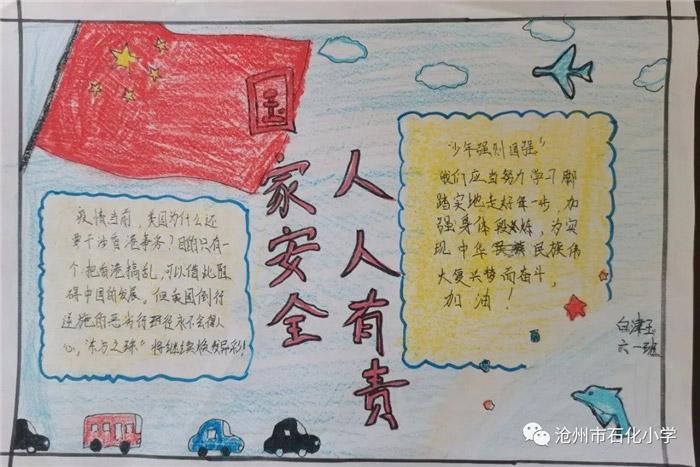 国家安全
人人有责
疫情当前，美国为什么还
要干涉香港事务？目的只有一
个：把香港搞乱，可以借此阻
碍中国的发展。但美国倒行
逆施的恶劣行径永不会得人
心，"东方之珠"将继续焕发异彩！
"少年强则国强"
我们应当努力学习脚
踏实地走好每一步，加
强身体锻炼，为实
现中华民族伟
大复兴梦而奋斗，
加油！
白津玉
六一班
沧州市石化小学